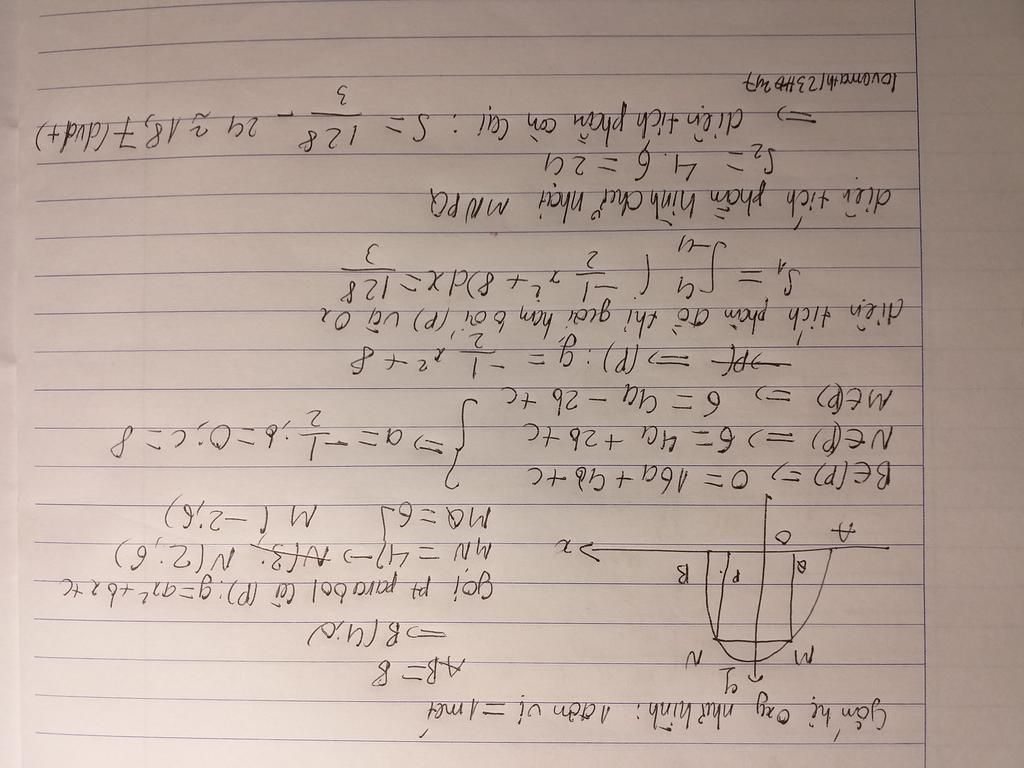 Gắn hệ Oxy như hình: 1 đơn vị = 1 mét
AB = 8
=> B(4;0)
Gọi pt parabol là (P): y = ax² + bx + c
MN = 4 => N(2; 6)
MQ = 6 M(-2; 6)
y
M
N
Q
P
B
A
O
x
B∈(P) => 0 = 16a + 4b + c
N∈(P) => 6 = 4a + 2b + c
M∈(P) => 6 = 4a - 2b + c
=> a = -1/2; b = 0; c = 8
=> (P): y = -1/2 x² + 8
diện tích phần đồ thị giới hạn bởi (P) và Ox
S₁ = ∫₋₄⁴ (-1/2 x² + 8)dx = 128/3
diện tích phần hình chữ nhật MNPQ
S₂ = 4.6 = 24
=> diện tích phần còn lại: S = 128/3 - 24 ≈ 18,7(đvdt)